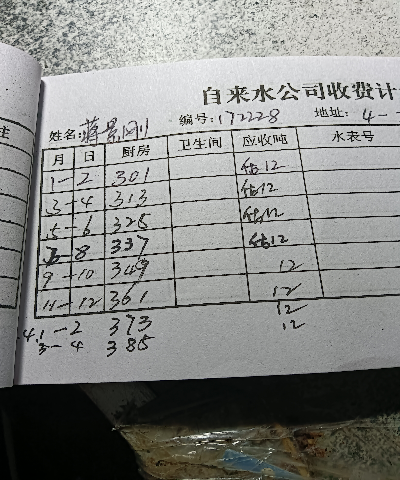 自来水公司收费计
姓名: 蒋景刚 编号: 172228 地址: 4-
月 日 厨房 卫生间 应收吨 水表号
1-2 301 估12
3-4 313 估12
5-6 325 估12
7-8 337 估12
9-10 349 12
11-12 361 12
4.1-2 373 12
3-4 385 12